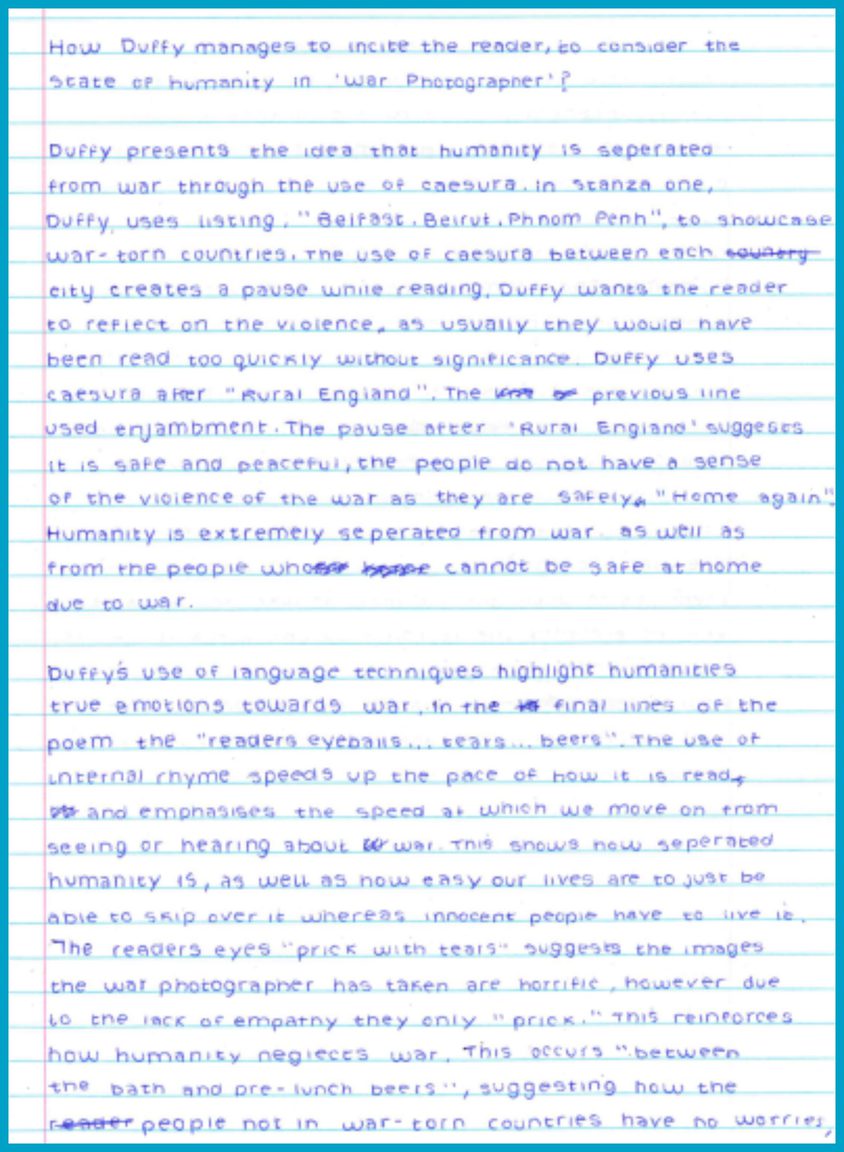 How Duffy manages to incite the reader, to consider the
state of humanity in 'War Photographer'?
Duffy presents the idea that humanity is seperated
from war through the use of caesura. In stanza one,
Duffy uses listing, "Belfast. Beirut. Phnom Penh", to showcase
war-torn countries. The use of caesura between each country
city creates a pause while reading, Duffy wants the reader
to reflect on the violence, as usually they would have
been read too quickly without significance. Duffy uses
caesura after "Rural England". The previous line
used enjambment. The pause after 'Rural England' suggests
it is safe and peaceful, the people do not have a sense
of the violence of the war as they are safely, "Home again".
Humanity is extremely seperated from war as well as
from the people who cannot be safe at home
due to war.
Duffy's use of language techniques highlight humanities
true emotions towards war. In the final lines of the
poem the "readers eyeballs... tears... beers". The use of
internal rhyme speeds up the pace of how it is read,
and emphasises the speed at which we move on from
seeing or hearing about war. This shows how seperated
humanity is, as well as how easy our lives are to just be
able to skip over it whereas innocent people have to live it.
The readers eyes "prick with tears" suggests the images
the war photographer has taken are horrific, however due
to the lack of empathy they only "prick." This reinforces
how humanity neglects war. This occurs "between
the bath and pre-lunch beers", suggesting how the
reader people not in war-torn countries have no worries,